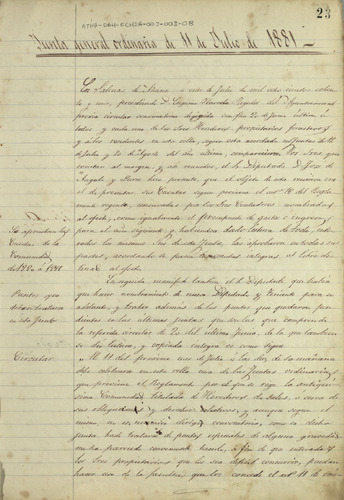 ATHA-DAH-ECHDA-003-003-08
23
Junta general ordinaria de 11 de Julio de 1881
En Salinas de Añana a once de Julio de mil ochocientos ochenta
y uno, presidiendo D. Regidor del Ayuntamiento
previa circular convocatoria dirigida con fin 20 de Junio último á
todos y cada uno de los Sres. Herederos propietarios forasteros
y á los residentes en esta villa, segun está acordado en Juntas de 11
de Julio y 20 de Agosto del año último, comparecieron los Sres. que
constan al margen y el Diputado D. José de
hizo presente, que el objeto de esta reunion era
el de presentar sus Cuentas segun previene el art.º del Regla
mento vigente, por los Sres. Contadores nombrados
al efecto, como igualmente el presupuesto de gastos é ingresos
para el año siguiente, y habiéndose dado lectura de todo, ente
rados los mismos Sres. de esta Junta, las aprobaron en todas sus
partes, acordando se pasen integras, el libro des
tinado al efecto.
Se aprueban las
Cuentas de la
Comunidad
de 1880 á 1881
En seguida manifestó tambien el Sr. Diputado que habia
que hacer nombramiento de nuevo Diputado y para en
adelante, y tratar además de los puntos que quedaron pen
dientes en las últimas Juntas que son los que comprende
la referida circular de 20 del último Junio, de la que tambien
se dió lectura, y copiada integra es como sigue
Puntos que
deben tratarse
en esta Junta
Circular
"El 11 del proximo mes de Julio á las diez de su mañana
debe celebrarse en esta villa una de las Juntas ordinarias
que previene el Reglamento por el que se rige la antiquí
sima Comunidad titulada de Herederos de Salinas, á cerca de
sus obligaciones y derechos relativos, y aunque segun el
mismo, no es necesario dirigir convocatoria, como en dicha
junta hade tratarse de puntos especiales de alguna gravedad
me ha parecido conveniente hacerlo, á fin de que enterados
los Sres. propietarios que les sea dificil concurrir, puedan
hacer uso de la facultad que les concede el art.º 11 de